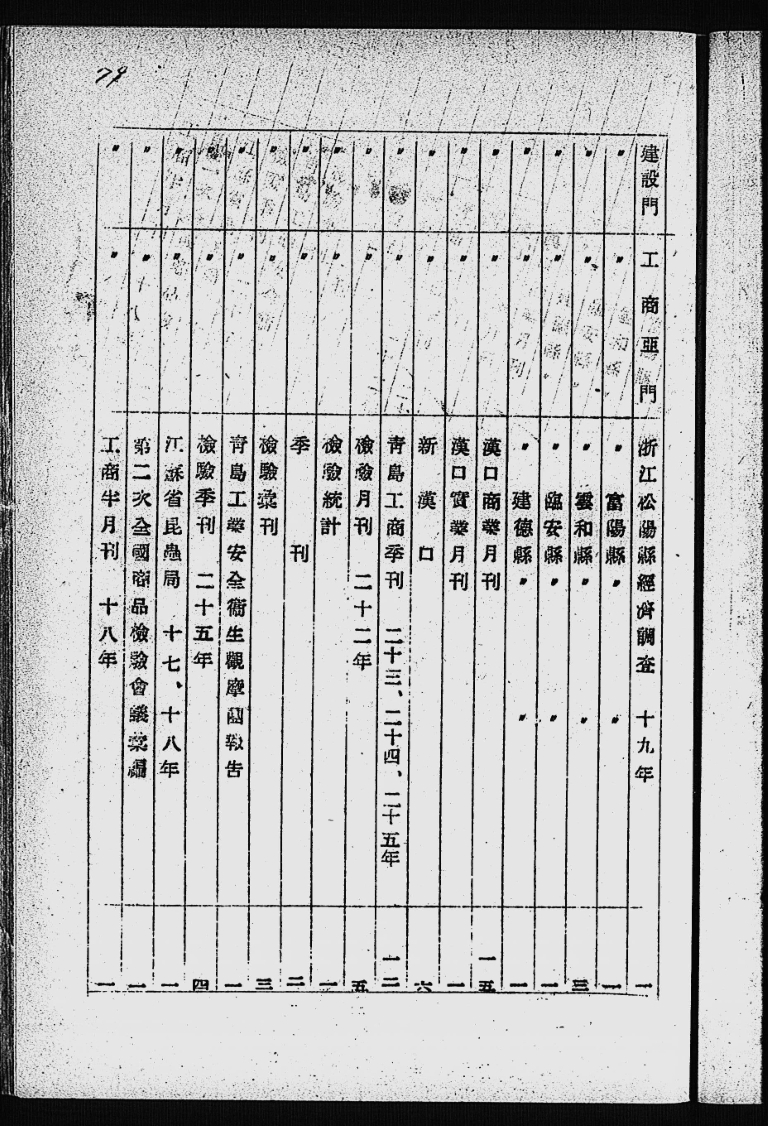 79
建設門 工商亜門 浙江松陽縣經濟調查 十九年 一
〃 〃 〃富陽縣〃 〃 一
〃 〃 〃雲和縣〃 〃 三
〃 〃 〃臨安縣〃 〃 一
〃 〃 〃建德縣〃 〃 一
〃 〃 漢口商業月刊 一五
〃 〃 漢口實業月刊 一
〃 〃 新漢口 六
〃 〃 靑島工商季刊 二十三、二十四、二十五年 一二
〃 〃 檢驗月刊 二十二年 五
〃 〃 檢驗統計 一
〃 〃 季刊 二
〃 〃 檢驗彙刊 三
〃 〃 靑島工業安全衞生觀摩團報告 一
〃 〃 檢驗季刊 二十五年 四
〃 〃 江蘇省昆蟲局 十七、十八年 一
〃 〃 第二次全國商品檢驗會議彙編 一
〃 〃 工商半月刊 十八年 一